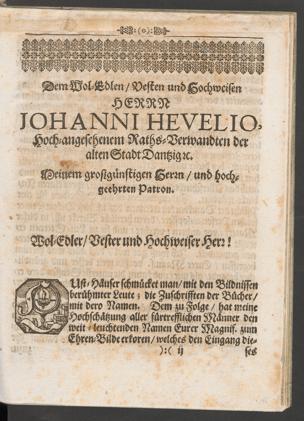 :(o):
Dem Wol-Edlen / Vesten und Hochweisen
HERRN
JOHANNI HEVELIO,
Hoch-angesehenem Raths-Verwandten der
alten Stadt Dantzig ꝛc.
Meinem großgünstigen Herrn / und hoch-
geehrten Patron.
Wol-Edler / Vester und Hochweiser Herr!
LUst-Häuser schmücket man / mit den Bildnissen
berühmter Leute; die Zuschrifften der Bücher /
mit dero Namen. Dem zu Folge / hat meine
Hochschätzung aller fürtrefflichen Männer den
weit-leuchtenden Namen Eurer Magnif. zum
Ehren-Bilde erkoren / welches den Eingang die-
):( ij ses